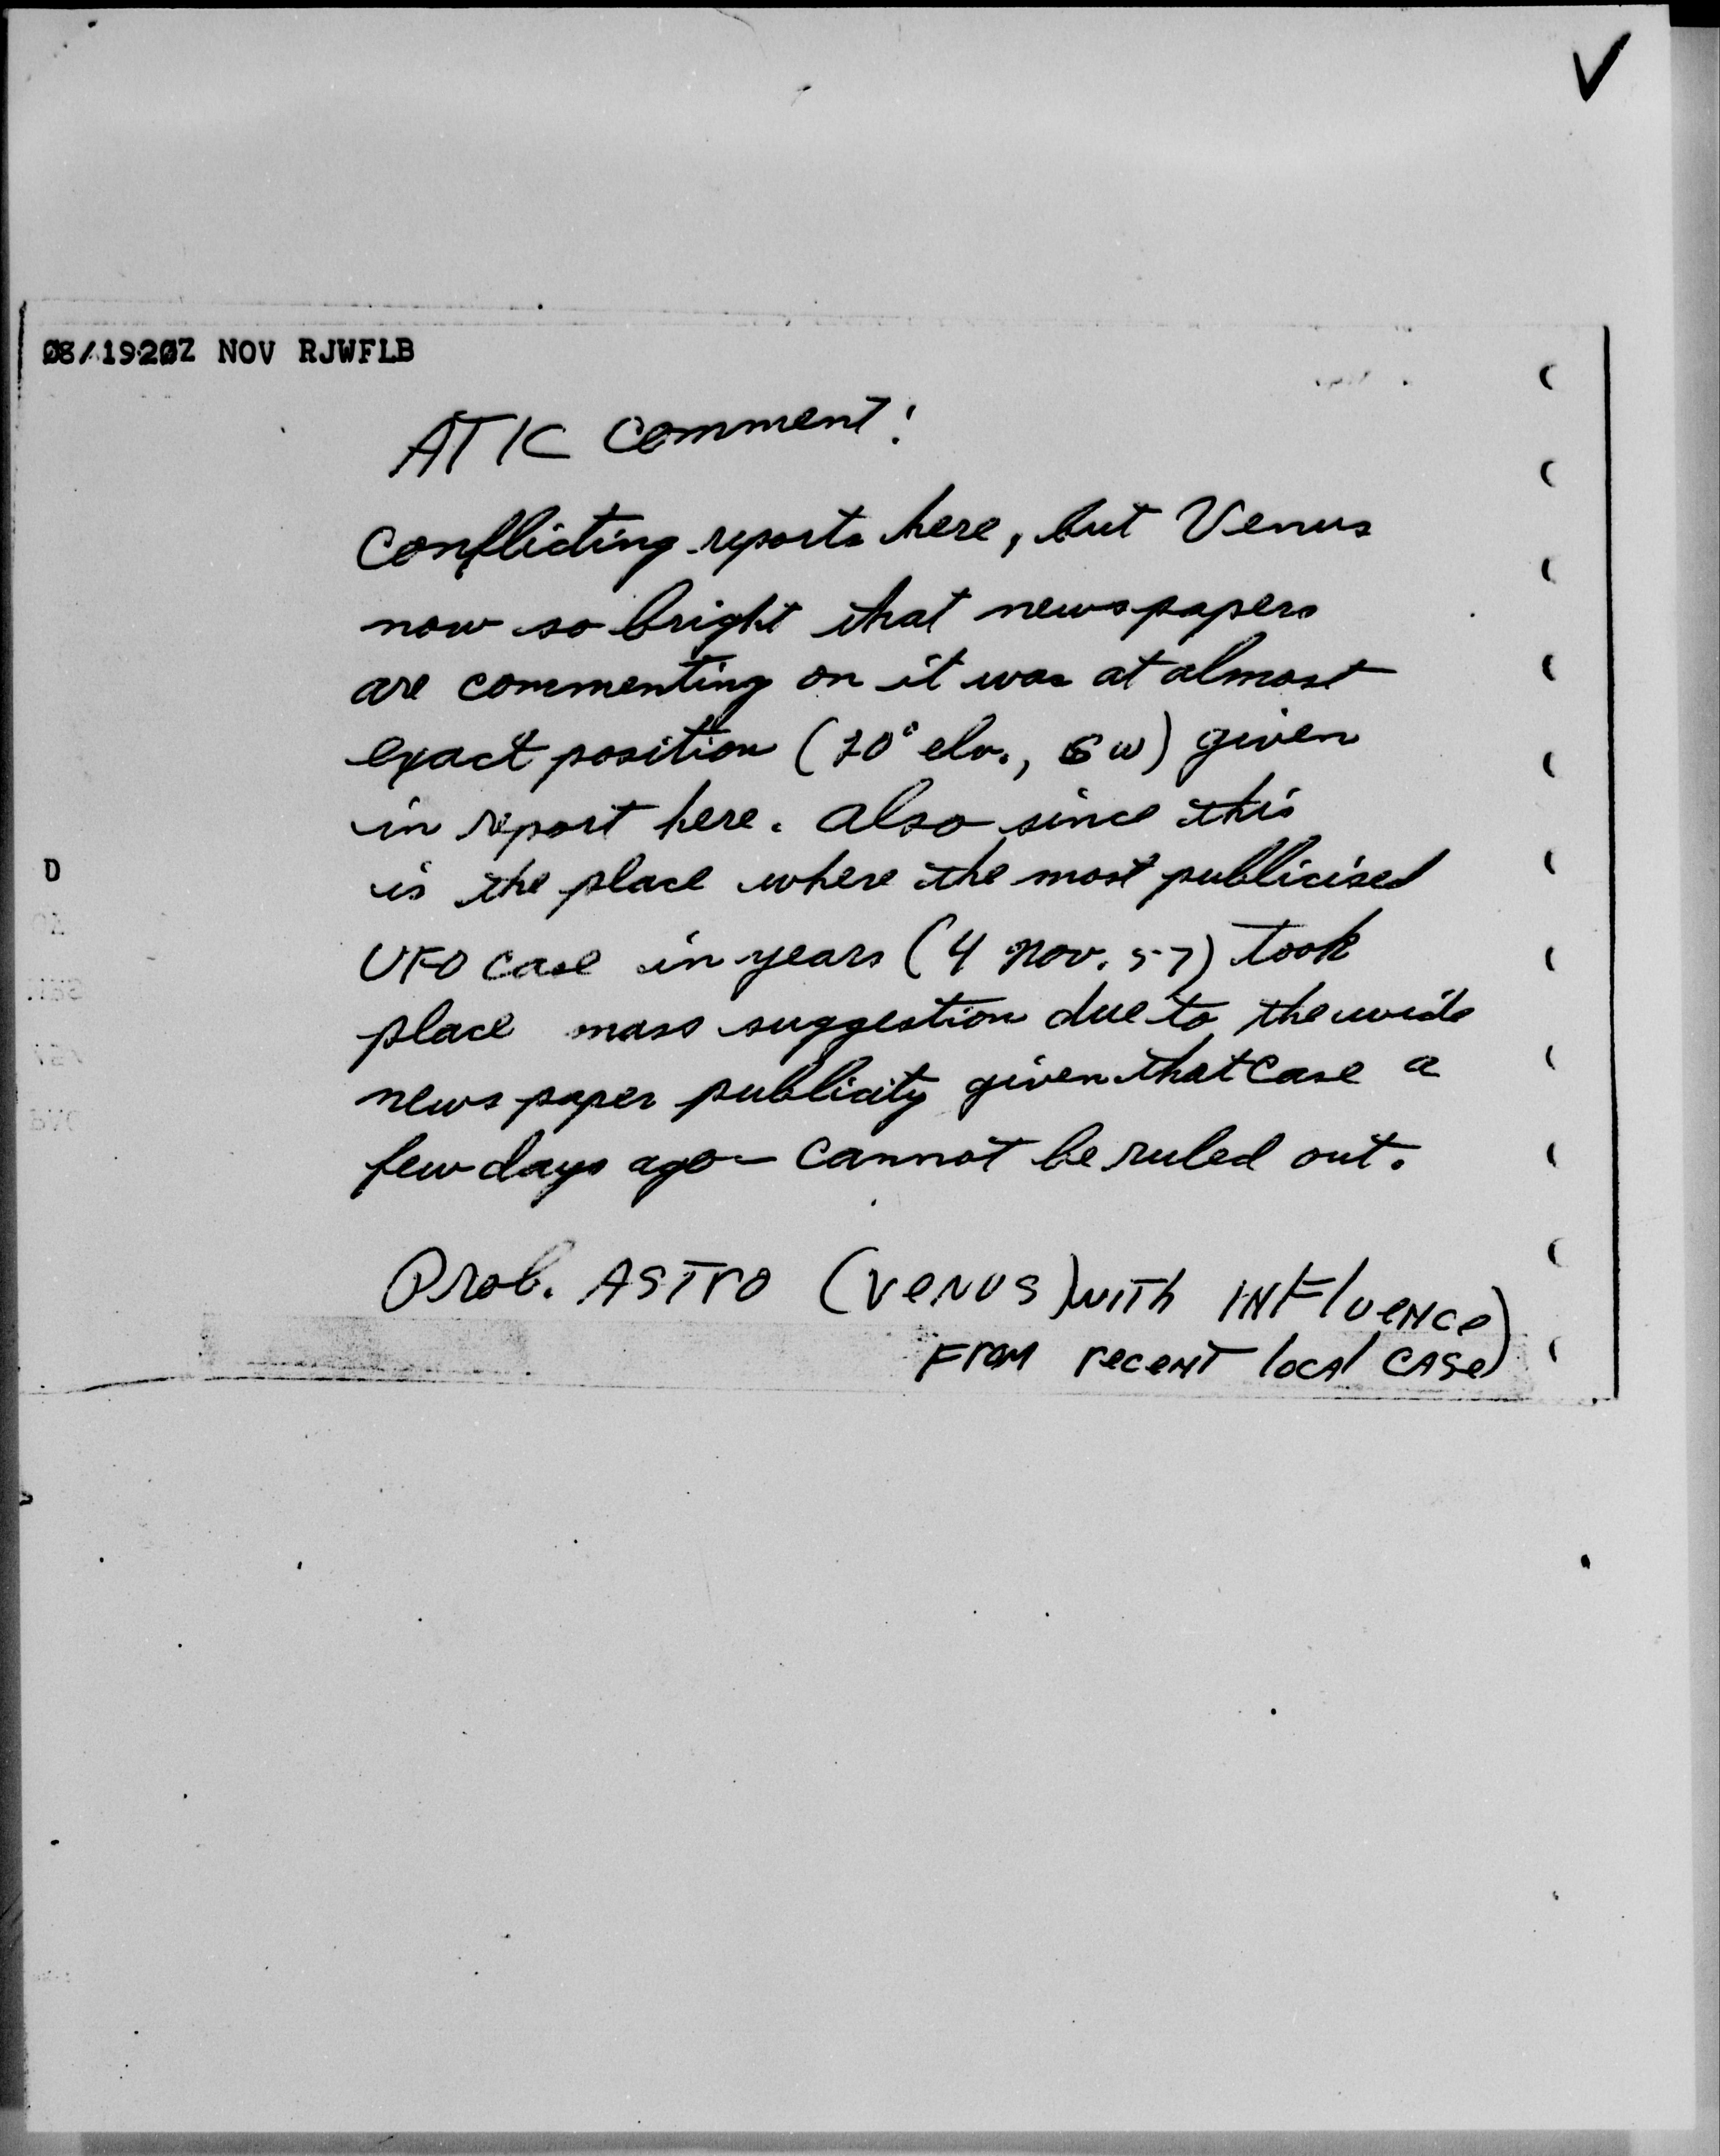 ✓
08/1920Z NOV RJWFLB
ATIC Comment:
Conflicting reports here, but Venus
now so bright that newspapers
are commenting on it was at almost
exact position (20° elv., SW) given
in report here. Also since this
is the place where the most publicised
UFO case in years (4 Nov. 57) took
place mass suggestion due to the wide
newspaper publicity given that case a
few days ago – cannot be ruled out.
Prob. ASTro (VeNUS) wITh INFlUeNCe
From receNT locAl CASe)
D